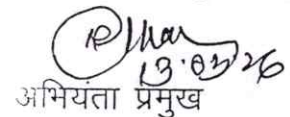 13.03.26
अभियंता प्रमुख